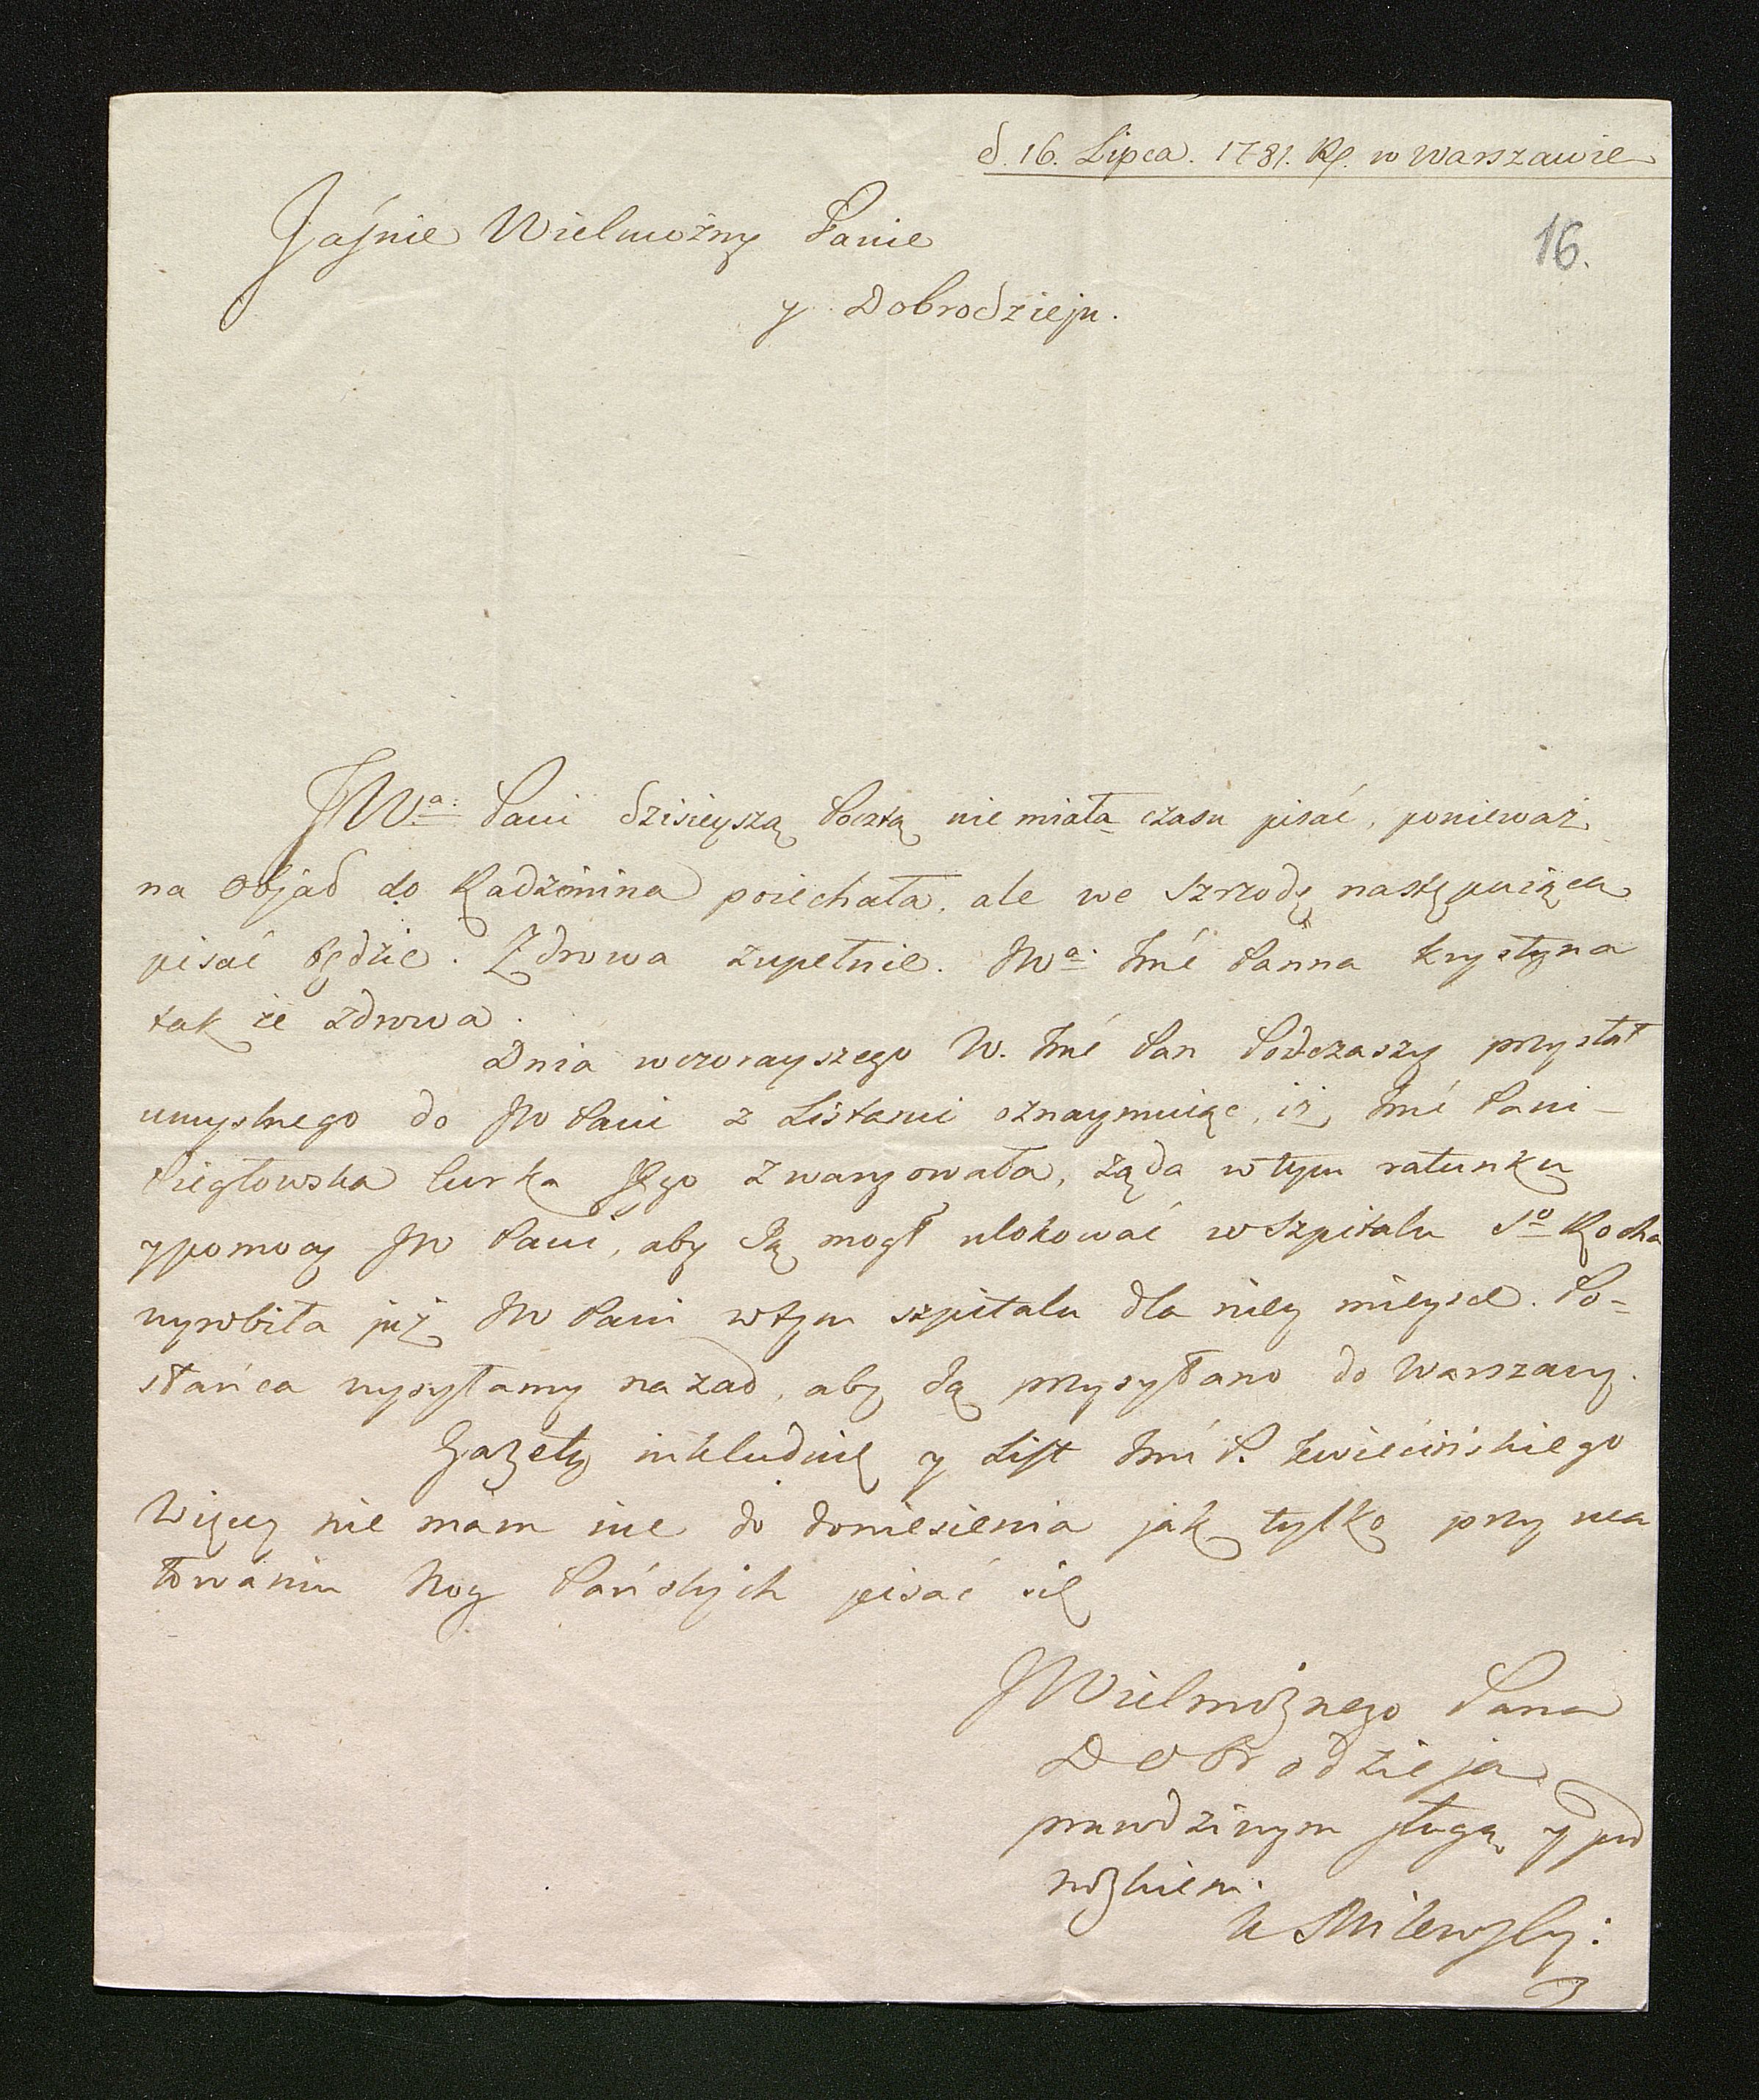 d. 16. Lipca. 1781. R. w Warszawie
16.
Jaśnie Wielmożny Panie
y Dobrodzieju.
JWa. Pani dzisieyszą Pocztą nie miała czasu pisać, ponieważ
na Objad do Radzimina poiechała, ale we Szrzodę następuiącą
pisać będzie. Zdrowa zupełnie. JWa. Jmć Panna Krystyna
tak że zdrowa.
Dnia wczorayszego W. Jmć Pan Podczaszy przysłał
umyslnego do JW Pani z Listami oznaymuiąc, iż Jmć Pani
Curka Jego zwaryowała, żąda w tym ratunku
y pomocy JW Pani, aby Ją mogł ulokować w Szpitalu So Rocha
wyrobiła już JW Pani w tym szpitalu dla niey mieysce. Po-
słańca wysyłamy nazad, aby Ją przysyłano do Warszawy.
Gazety inkluduię y List Jmć P. Kwiecińskiego
Więcey nie mam nic do doniesienia jak tylko przy uca
łowaniu Nog Pańskich pisać się
JWielmożnego Pana
Dobrodzieja
prawdziwym sługą y pod
nożkiem.
Milewsky: